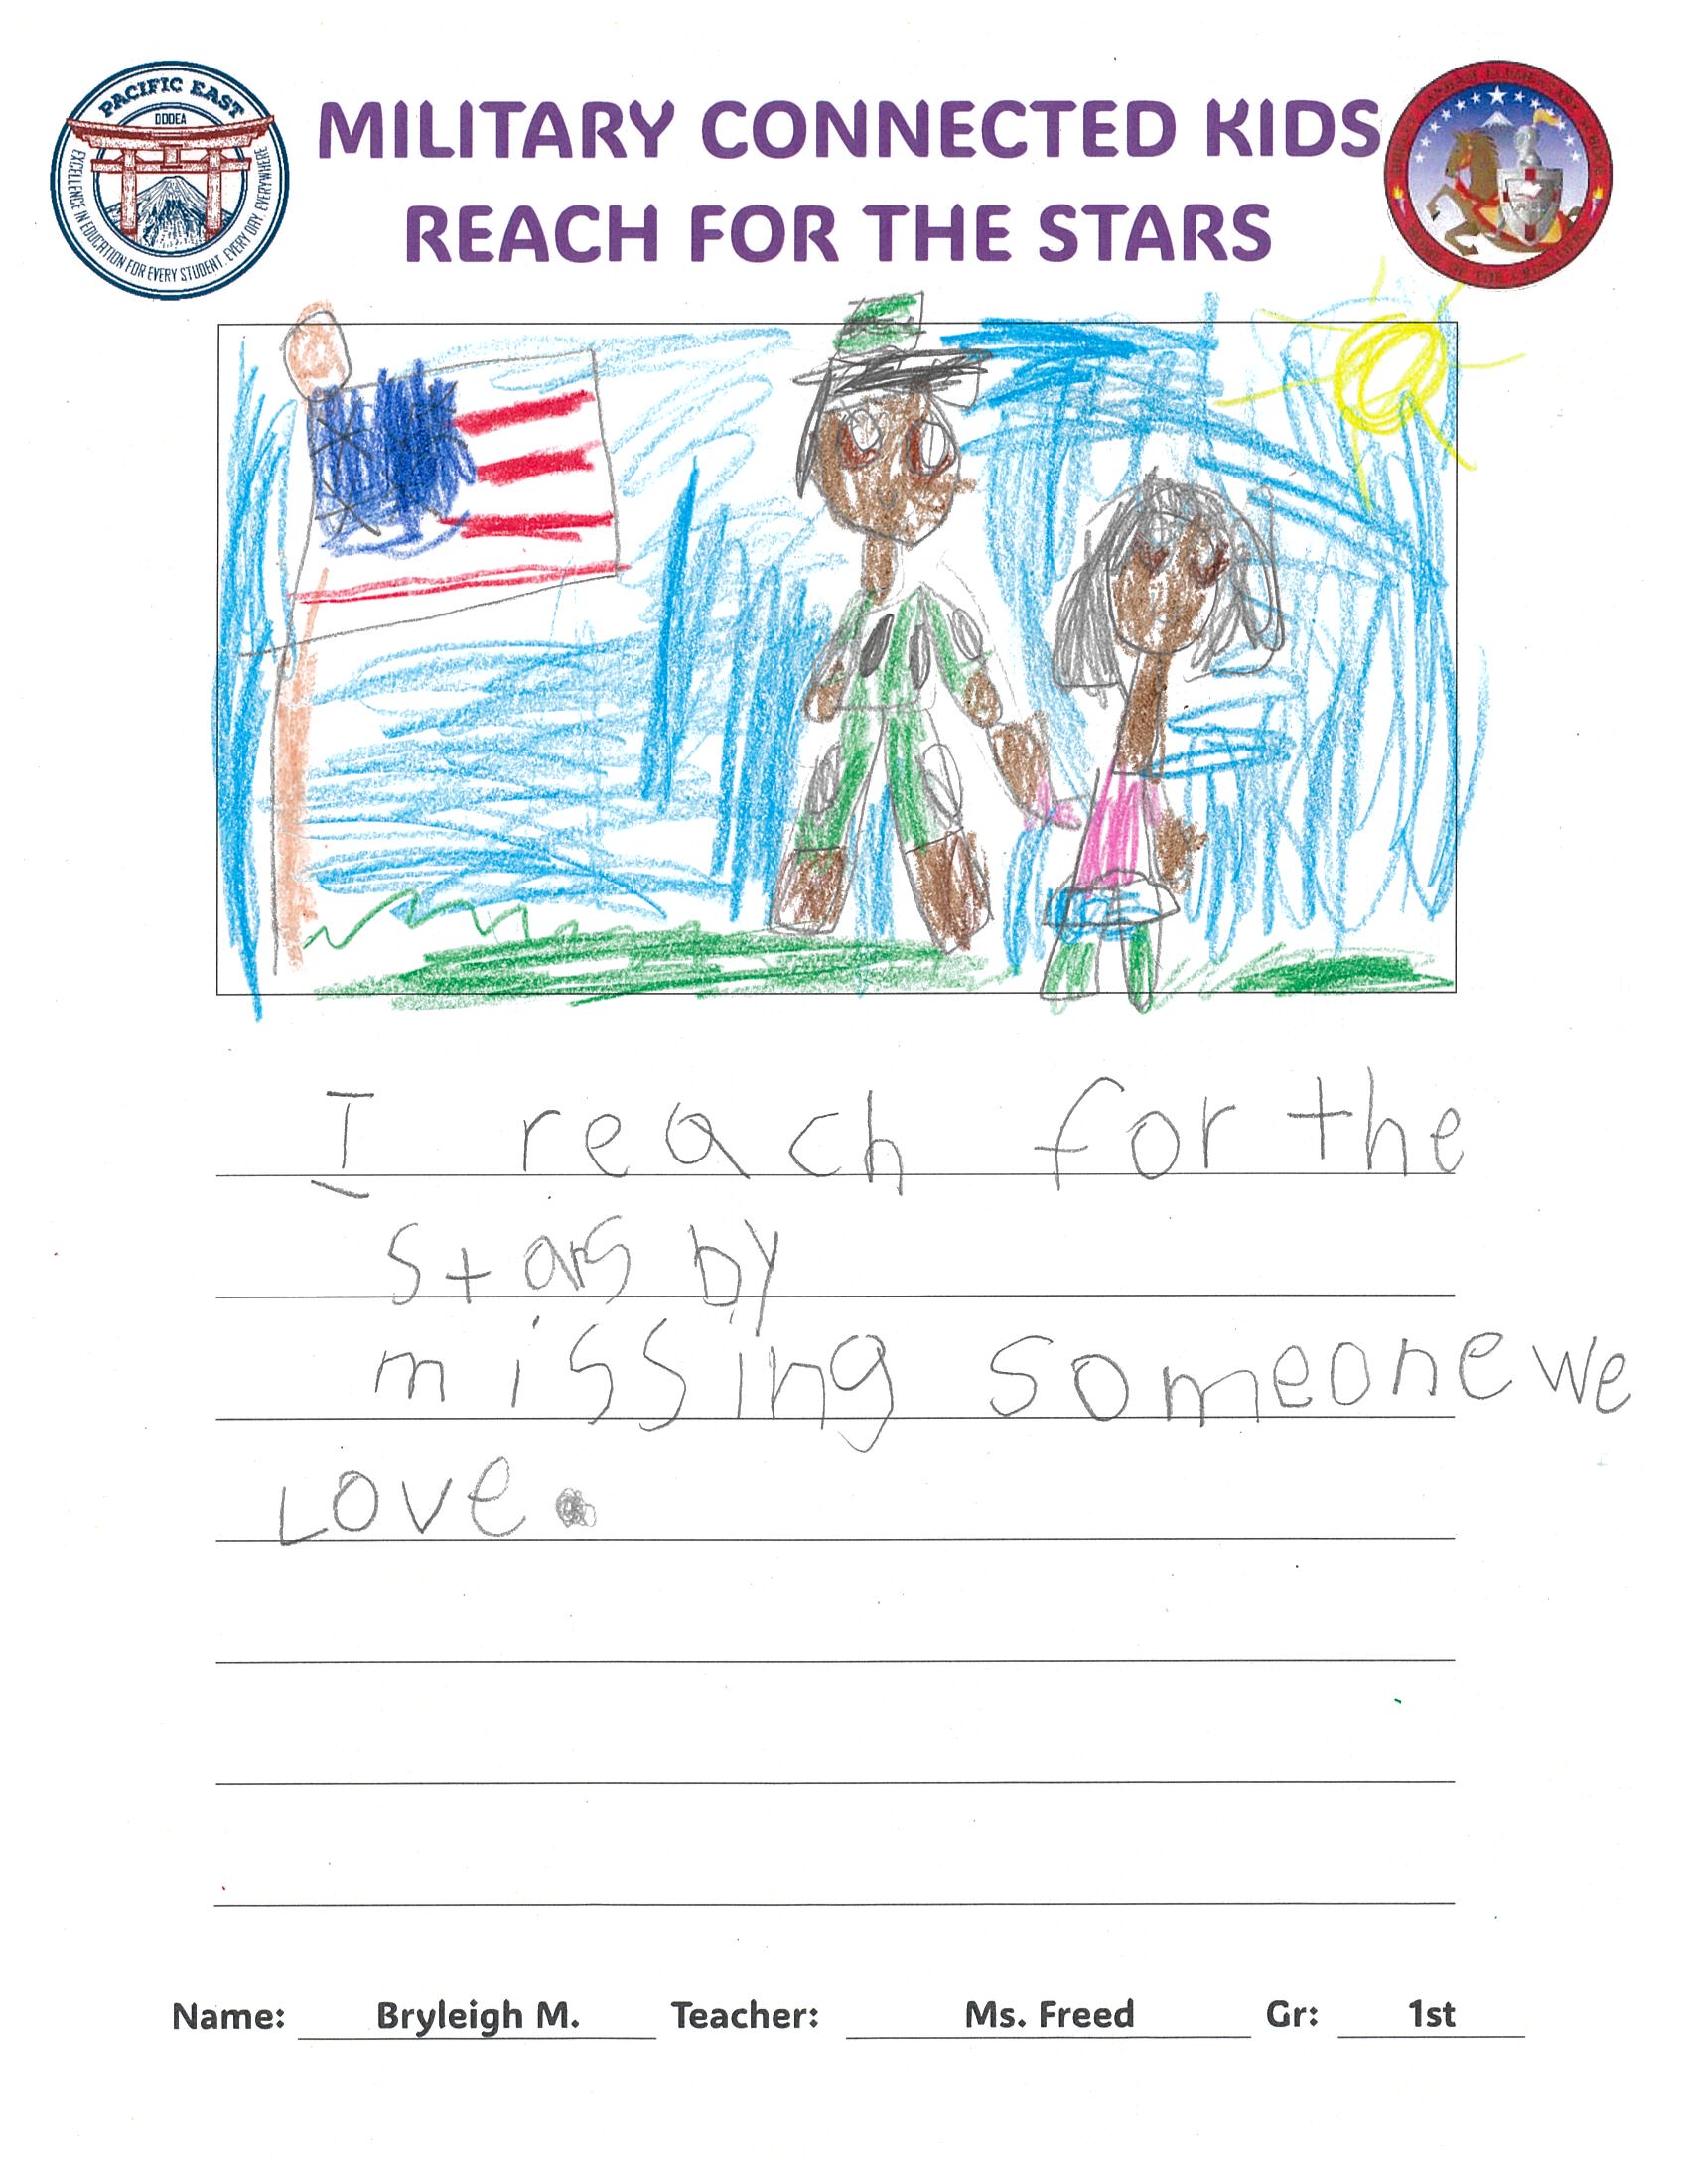 PACIFIC EAST
DODEA
EXCELLENCE IN EDUCATION FOR EVERY STUDENT, EVERY DAY, EVERYWHERE
MILITARY CONNECTED KIDS
REACH FOR THE STARS
I reach for the
stars by
missing someone we
Love.
Name: Bryleigh M. Teacher: Ms. Freed Gr: 1st